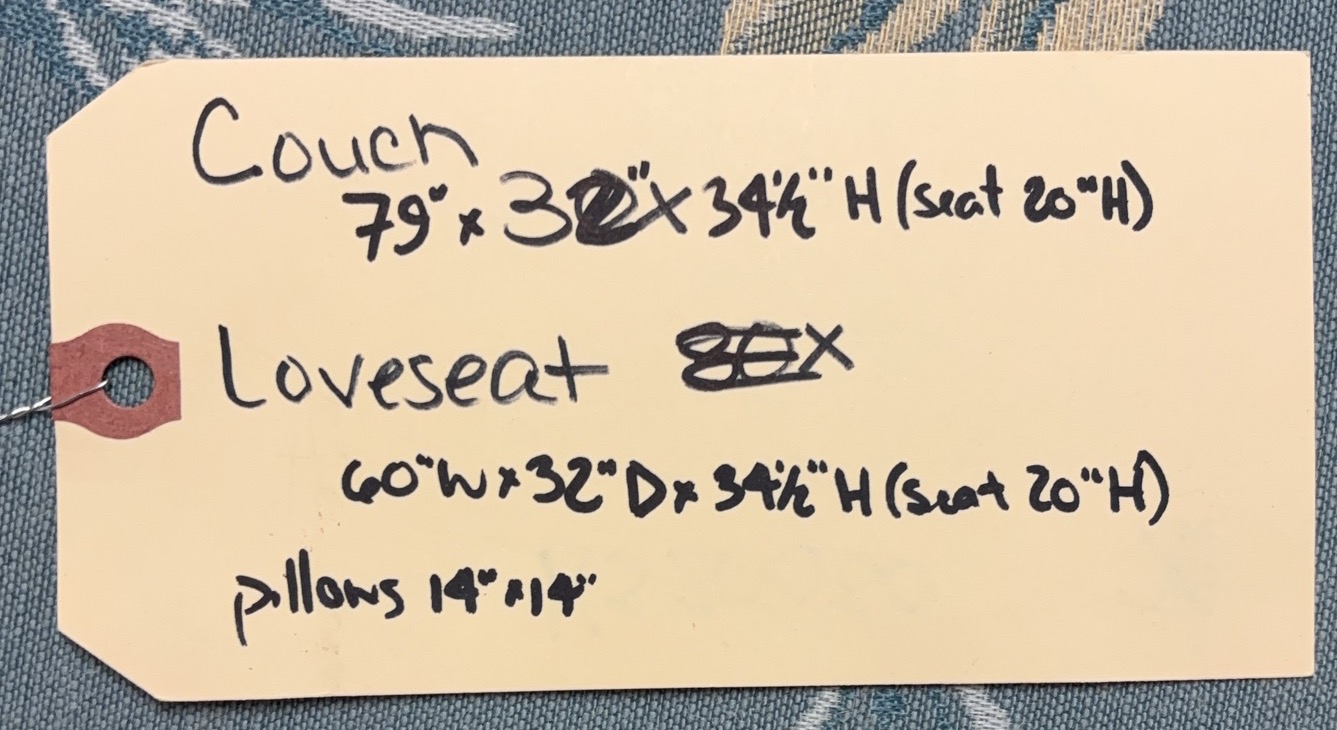 Couch
79" x 32" x 34½" H (seat 20" H)
Loveseat X
60" W x 32" D x 34½" H (seat 20" H)
pillows 14" x 14"